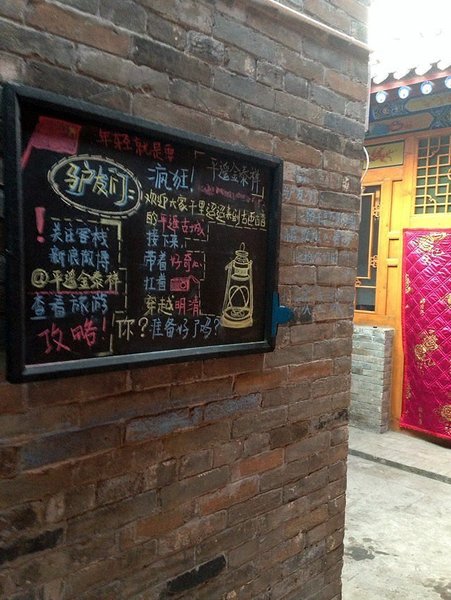 年轻就是要
疯狂!
平遥金荣祥
驴友们:
欢迎大家千里迢迢来到古色古香
的平遥古城
接下来,
带着好奇心
扛着
穿越明清
!
关注客栈
新浪微博
@平遥金荣祥
查看旅游
攻略!
你?准备好了吗?